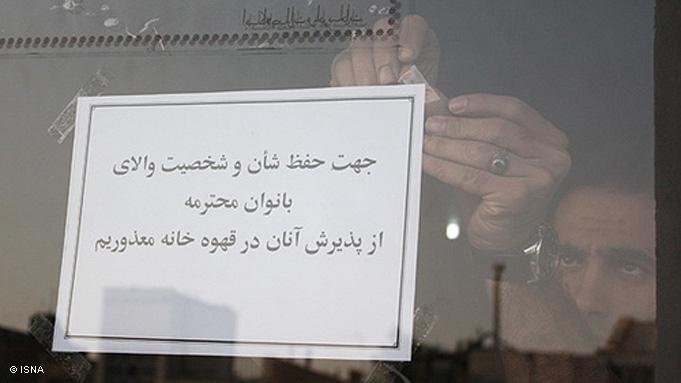 جهت حفظ شأن و شخصیت والای
بانوان محترمه
از پذیرش آنان در قهوه خانه معذوریم
© ISNA